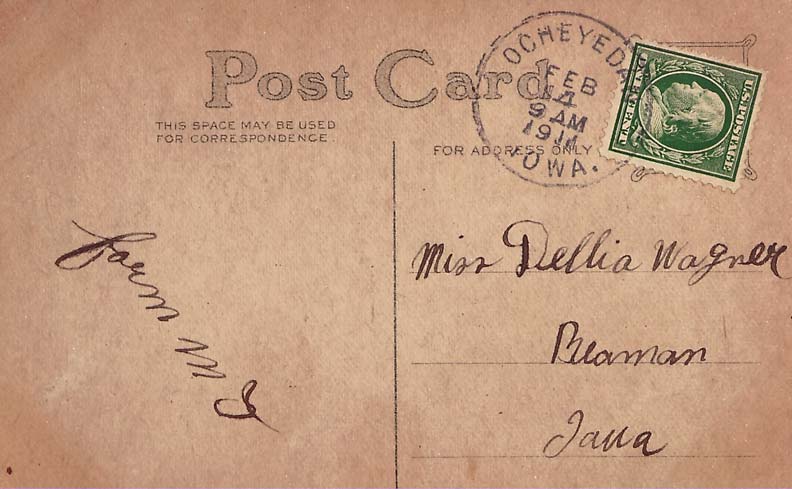 Post Card
THIS SPACE MAY BE USED
FOR CORRESPONDENCE.
FOR ADDRESS ONLY
OCHEYEDAN
FEB
14
9 AM
1911
IOWA.
U.S. POSTAGE
ONE CENT
Miss Dellia Wagner
Beaman
Iowa
form